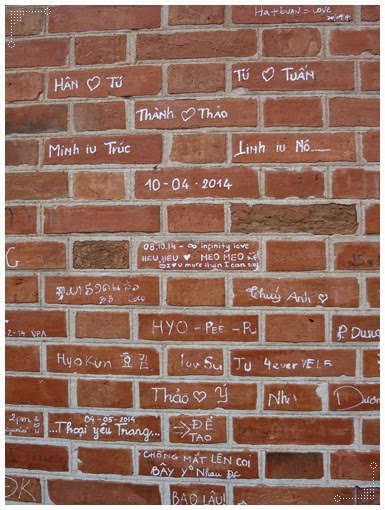 Ha + EVAN = LOVE
HÂN ♡ TÚ
TÚ ♡ TUẤN
THÀNH ♡ THẢO
Minh iu Trúc
Linh iu
10-04-2014
08.10.14 - ∞ infinity love
HEU HEU ♥ MEO MEO
u more than I can say
G
Thuý Anh ♡
2-14 VPA
HYO - PEE - R
HyoKun
Tuấn Su
TU 4ever YELS
Thảo ♡ Ý
Nhi
2pm
04-05-2014
...Thoại yêu Trang...
→ ĐỂ
TAO
CHỐNG MẮT LÊN COI
BÂY Yº Nhau Đc
BAO LÂU!